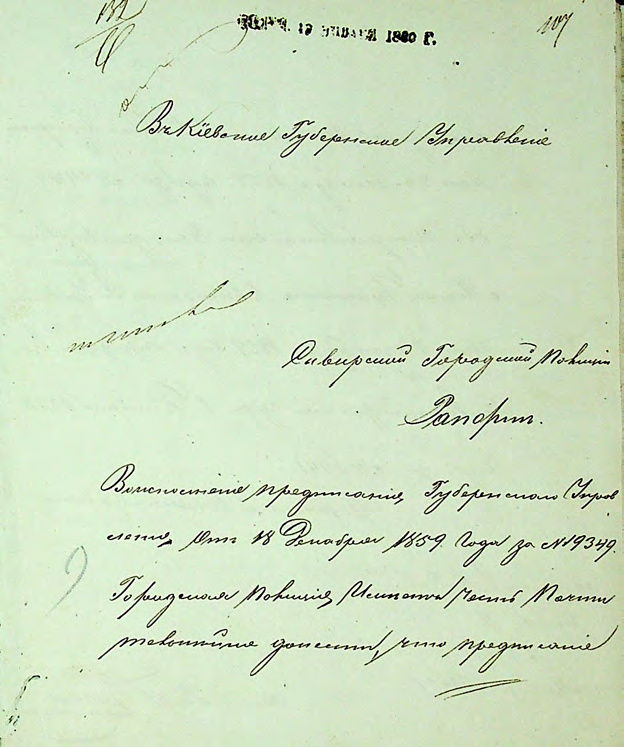 132
107
19 Января 1860 г.
Въ Кіевское Губернское Управленіе
Сквирской Городской Полиціи
Рапортъ.
Во исполненіе предписанія, Губернскаго Управ
ленія, отъ 18 Декабря 1859 Года за №19349.
Городская Полиція, Имѣетъ Честь Почти
тельнѣйше донести, что предписаніе